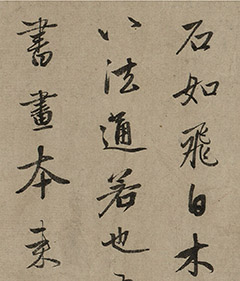 石如飛白木
八法通若也
書畫本來